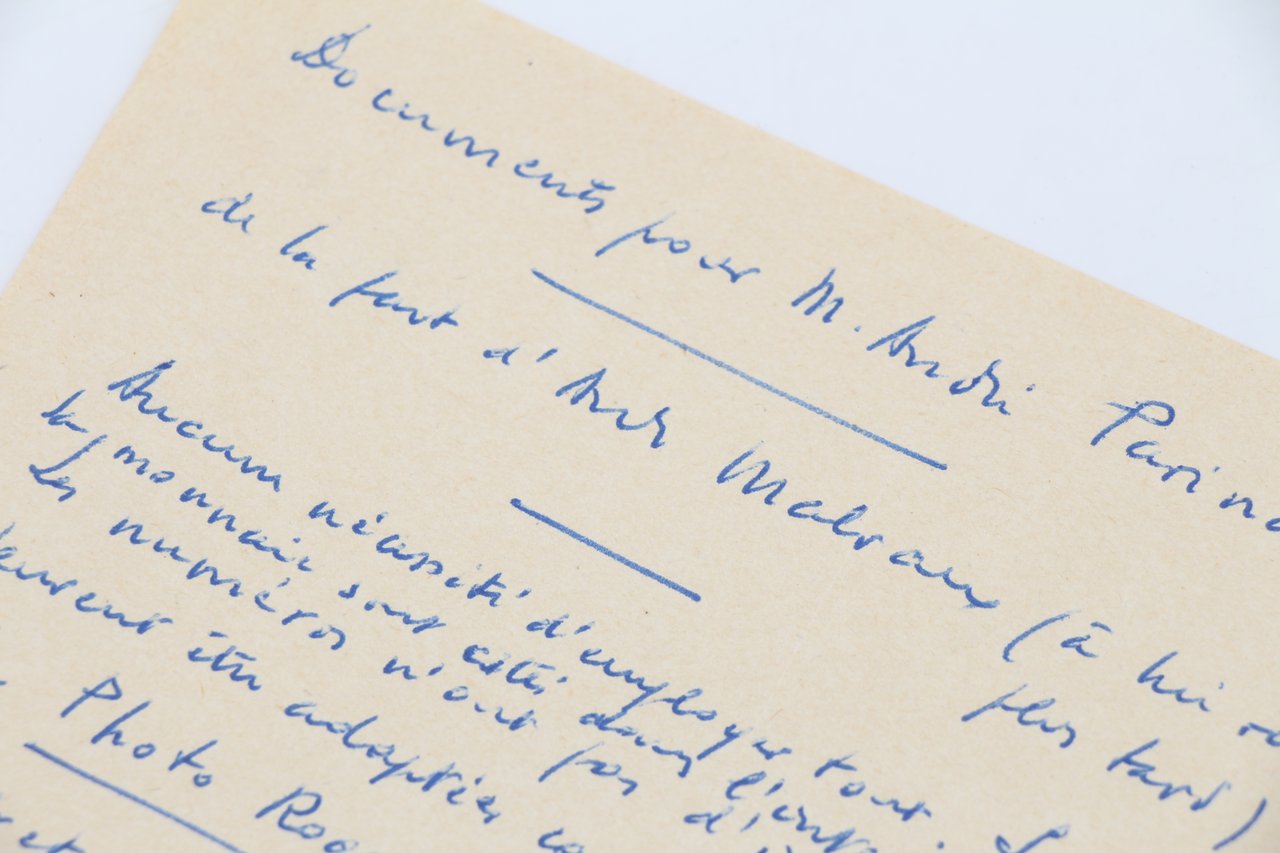 Documents pour M. André Parina
de la part d'André Malraux (à lui
plus tard)
Aucune nécessité d'employer tout.
la monnaie sont cités dans l'
Les numéros n'ont pas d'
être adaptées
Photo